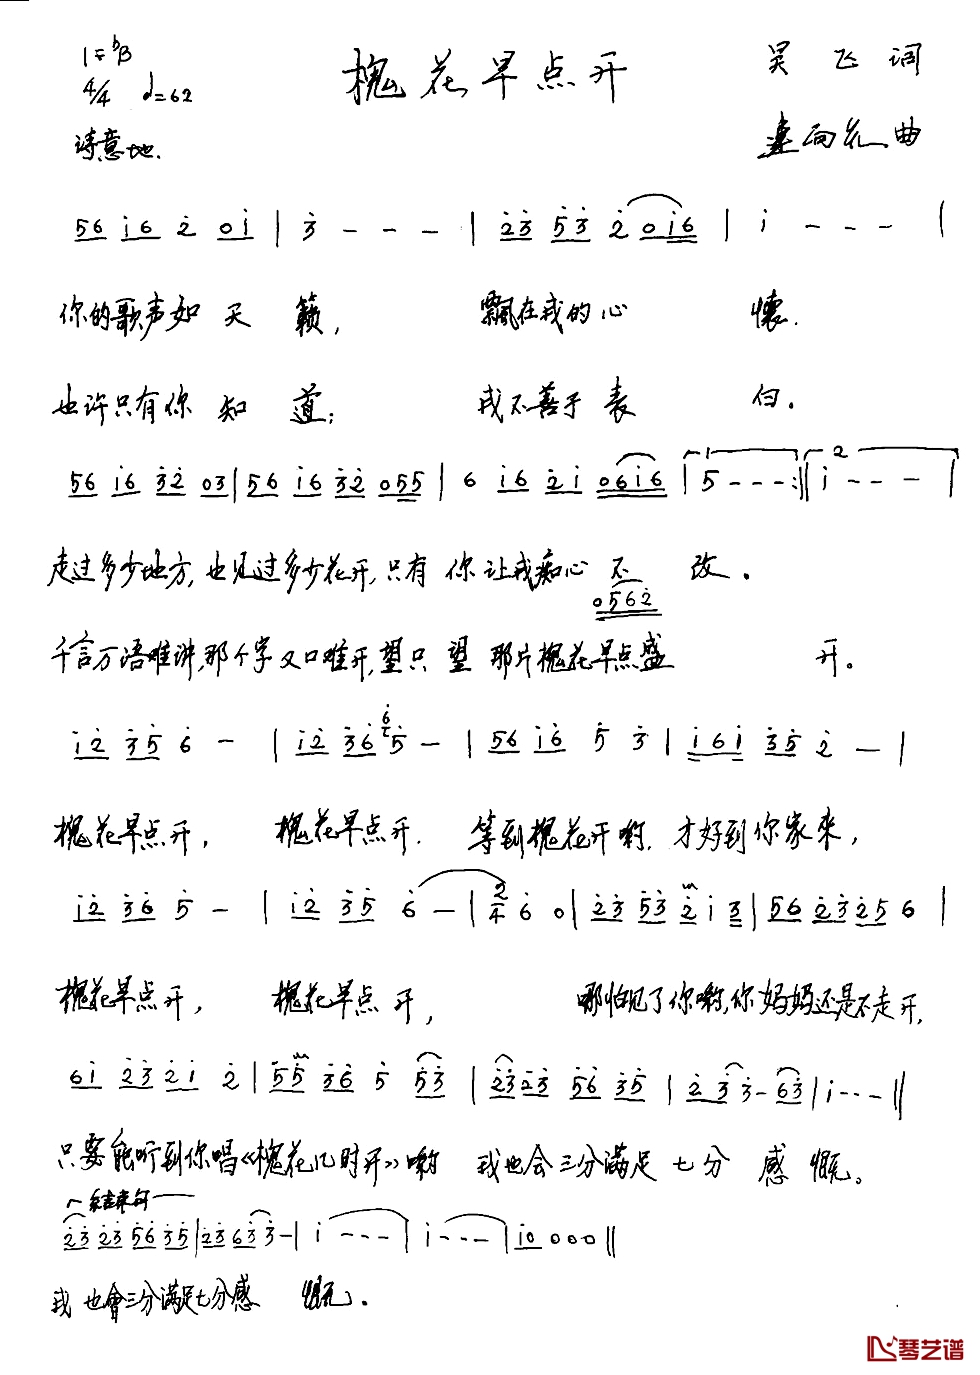 1=ᵇB
槐花早点开
吴 飞 词
4/4 ♩=62
诗意地.
孟向礼 曲
56 i6 2 0i | 3 - - - | 23 53 2 0i6 | i - - - |
你的歌声如天籁, 飘在我的心怀.
也许只有你知道; 我不善于表白.
1 2
56 i6 32 03 | 56 i6 32 055 | 6 i6 2i 06i6 | 5 - - - :|| i - - - |
走过多少地方, 也见过多少花开, 只有你让我痴心不改.
0562
千言万语难讲, 那个字又口难开, 望只望那片槐花早点盛开.
i2 35 6 - | i2 36 5 - | 56 i6 5 3 | i6i 35 2 - |
槐花早点开, 槐花早点开. 等到槐花开哟. 才好到你家来,
i2 36 5 - | i2 35 6 - | 2/4 6 0 | 23 53 2 i 3 | 56 23 25 6 |
槐花早点开, 槐花早点开, 哪怕见了你哟, 你妈妈还是不走开,
6i 23 2i 2 | 55 36 5 53 | 23 23 56 35 | 2 3 3 - 63 | i - - - ||
只要能听到你唱《槐花几时开》哟 我也会三分满足七分感慨。
结束句
23 23 56 35 | 23 63 3 - | i - - - | i - - - | i0 0 0 0 ||
我也會三分满足七分感慨.
琴艺谱